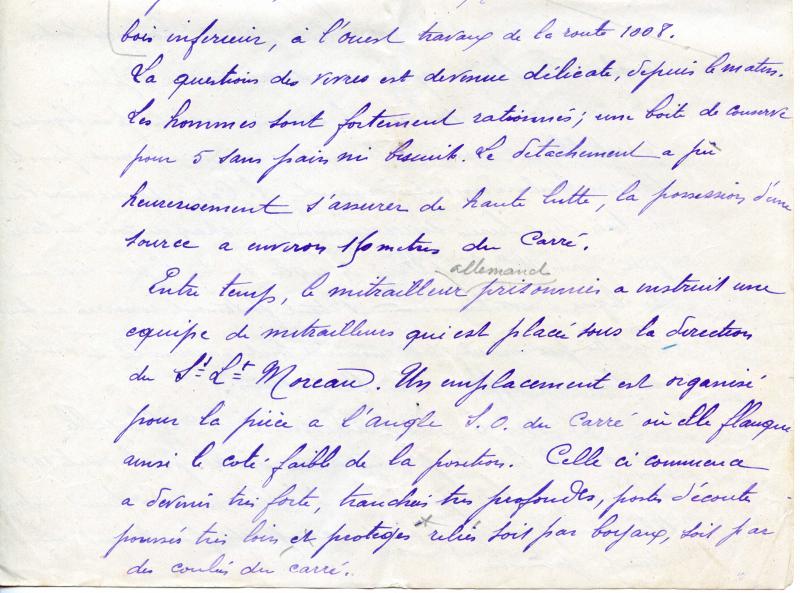 bois inferieur, à l'ouest travaux de la route 1008.
La question des vivres est devenue délicate, depuis le matin.
Les hommes sont fortement rationnés; une boite de conserve
pour 5 sans pain ni biscuit. Le detachement a pu
heureusement s'assurer de haute lutte, la possession d'une
source a environ 150 metres du Carré.
allemand
Entre temps, le mitrailleur prisonnier a instruit une
equipe de mitrailleurs qui est placée sous la direction
du St Lt Moreau. Un emplacement est organisé
pour la pièce a l'angle S.O. du Carré où elle flanque
ainsi le coté faible de la position. Celle ci commence
a devenir très forte, tranchées tres profondes, postes d'écoute
poussés très loin et protégés reliés soit par boyaux, soit par
des du carré.